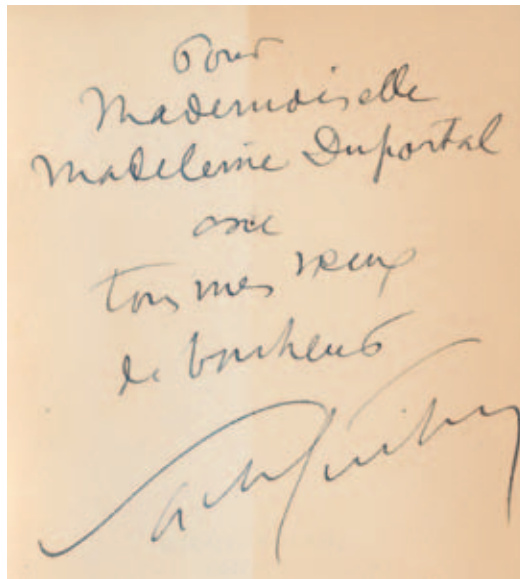 Pour
Mademoiselle
Madeleine Duportal
avec
tous mes vœux
de bonheur
Sacha Guitry